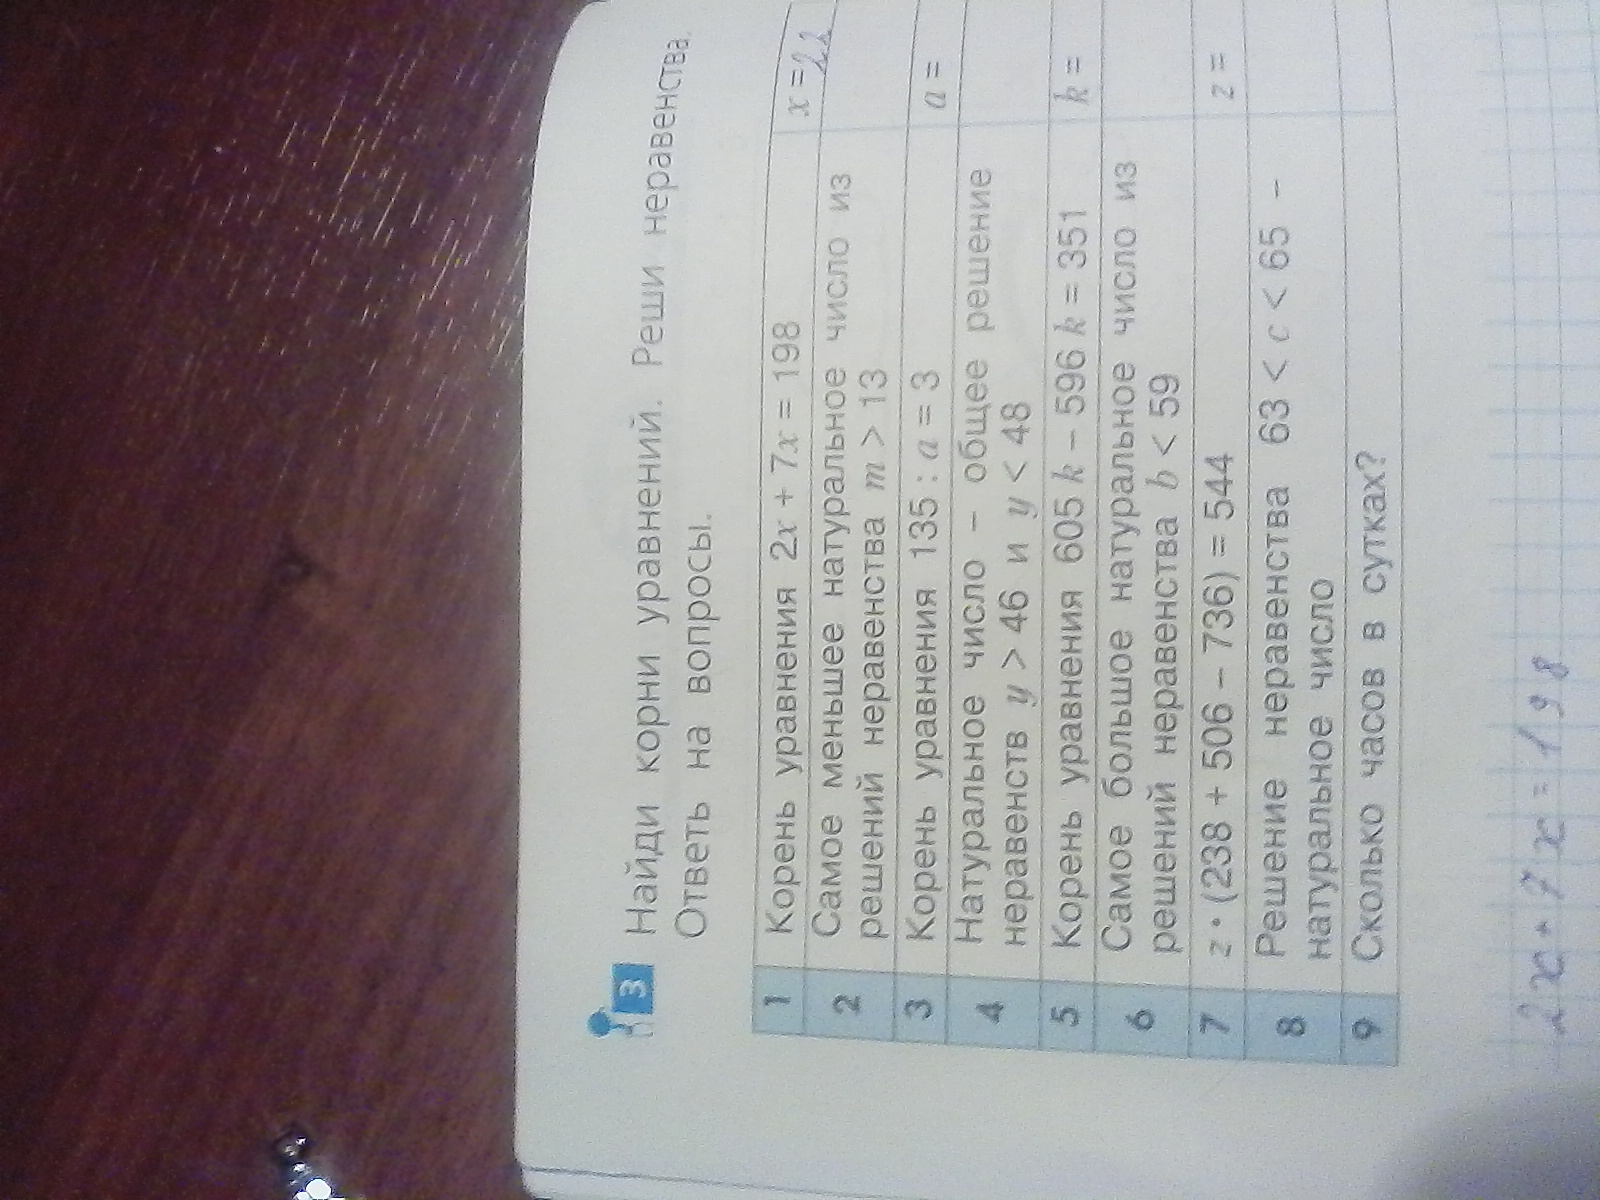 3 Найди корни уравнений. Реши неравенства.
Ответь на вопросы.
1 Корень уравнения 2x + 7x = 198 x = 22
2 Самое меньшее натуральное число из
решений неравенства m > 13
3 Корень уравнения 135 : a = 3 a =
4 Натуральное число – общее решение
неравенств y > 46 и y < 48
5 Корень уравнения 605 k – 596 k = 351 k =
6 Самое большое натуральное число из
решений неравенства b < 59
7 z · (238 + 506 – 736) = 544 z =
8 Решение неравенства 63 < c < 65 –
натуральное число
9 Сколько часов в сутках?
2x + 7x = 198